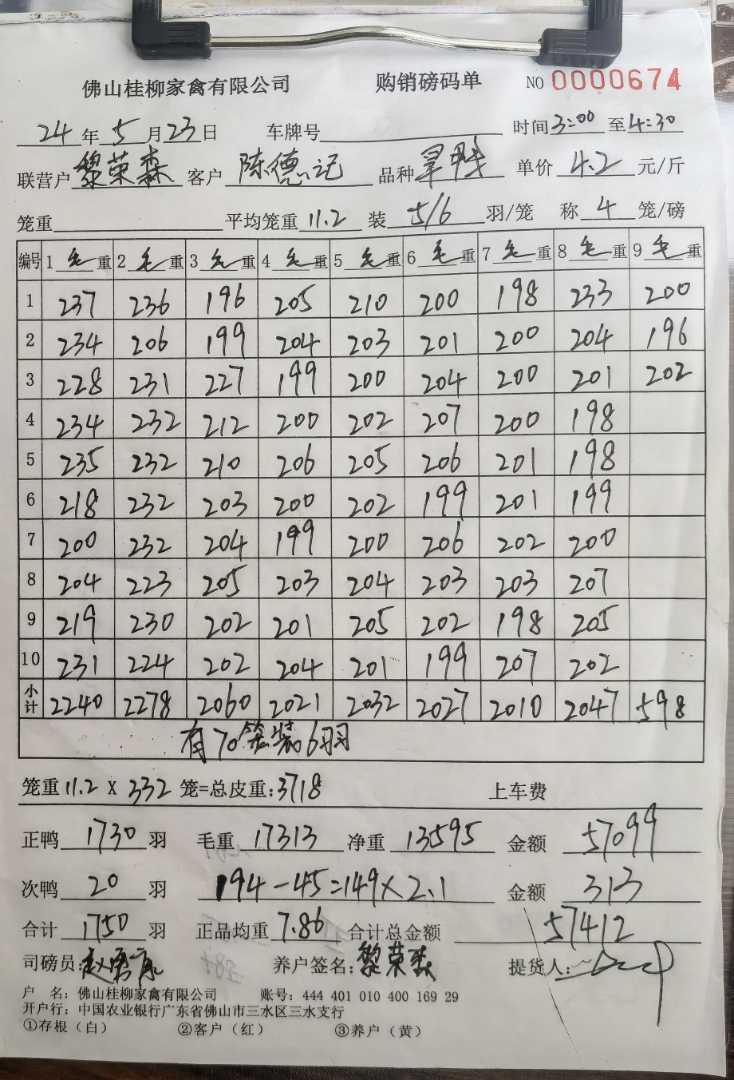 佛山桂柳家禽有限公司 购销磅码单 NO 0000674
24年5月23日 车牌号 时间3:00至4:30
联营户 黎荣森 客户 陈德记 品种 单价 4.2 元/斤
笼重 平均笼重 11.2 装 5/6 羽/笼 称 4 笼/磅
编号 1 毛重 2 毛重 3 毛重 4 毛重 5 毛重 6 毛重 7 毛重 8 毛重 9 毛重
1 237 236 196 205 210 200 198 233 200
2 234 206 199 204 203 201 200 204 196
3 228 231 227 199 200 204 200 201 202
4 234 232 212 200 202 207 200 198
5 235 232 210 206 205 206 201 198
6 218 232 203 200 202 199 201 199
7 200 232 204 199 200 206 202 200
8 204 223 205 203 204 203 203 207
9 219 230 202 201 205 202 198 205
10 231 224 202 204 201 199 207 202
小计 2240 2278 2060 2021 2032 2027 2010 2047 598
有70笼装6羽
笼重 11.2 X 332 笼=总皮重:3718 上车费
正鸭 1730 羽 毛重 17313 净重 13595 金额 57099
次鸭 20 羽 194-45=149×2.1 金额 313
合计 1750 羽 正品均重 7.86 合计总金额 57412
司磅员: 养户签名:黎荣森 提货人:
户 名:佛山桂柳家禽有限公司 账号:444 401 010 400 169 29
开户行:中国农业银行广东省佛山市三水区三水支行
①存根(白) ②客户(红) ③养户(黄)